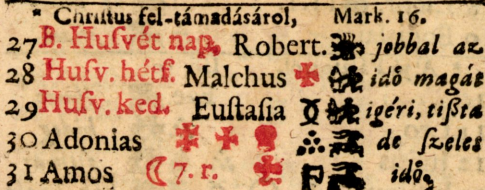 * Chriſtus fel-támadásárol, Mark. 16.
27 B. Huſvét nap. Robert. jobbal az
28 Huſv. hétf. Malchus idő magát
29 Huſv. ked. Euſtaſia ♉ igéri, tiſzta
30 Adonias de ſzeles
31 Amos ☾ 7. r. idő.